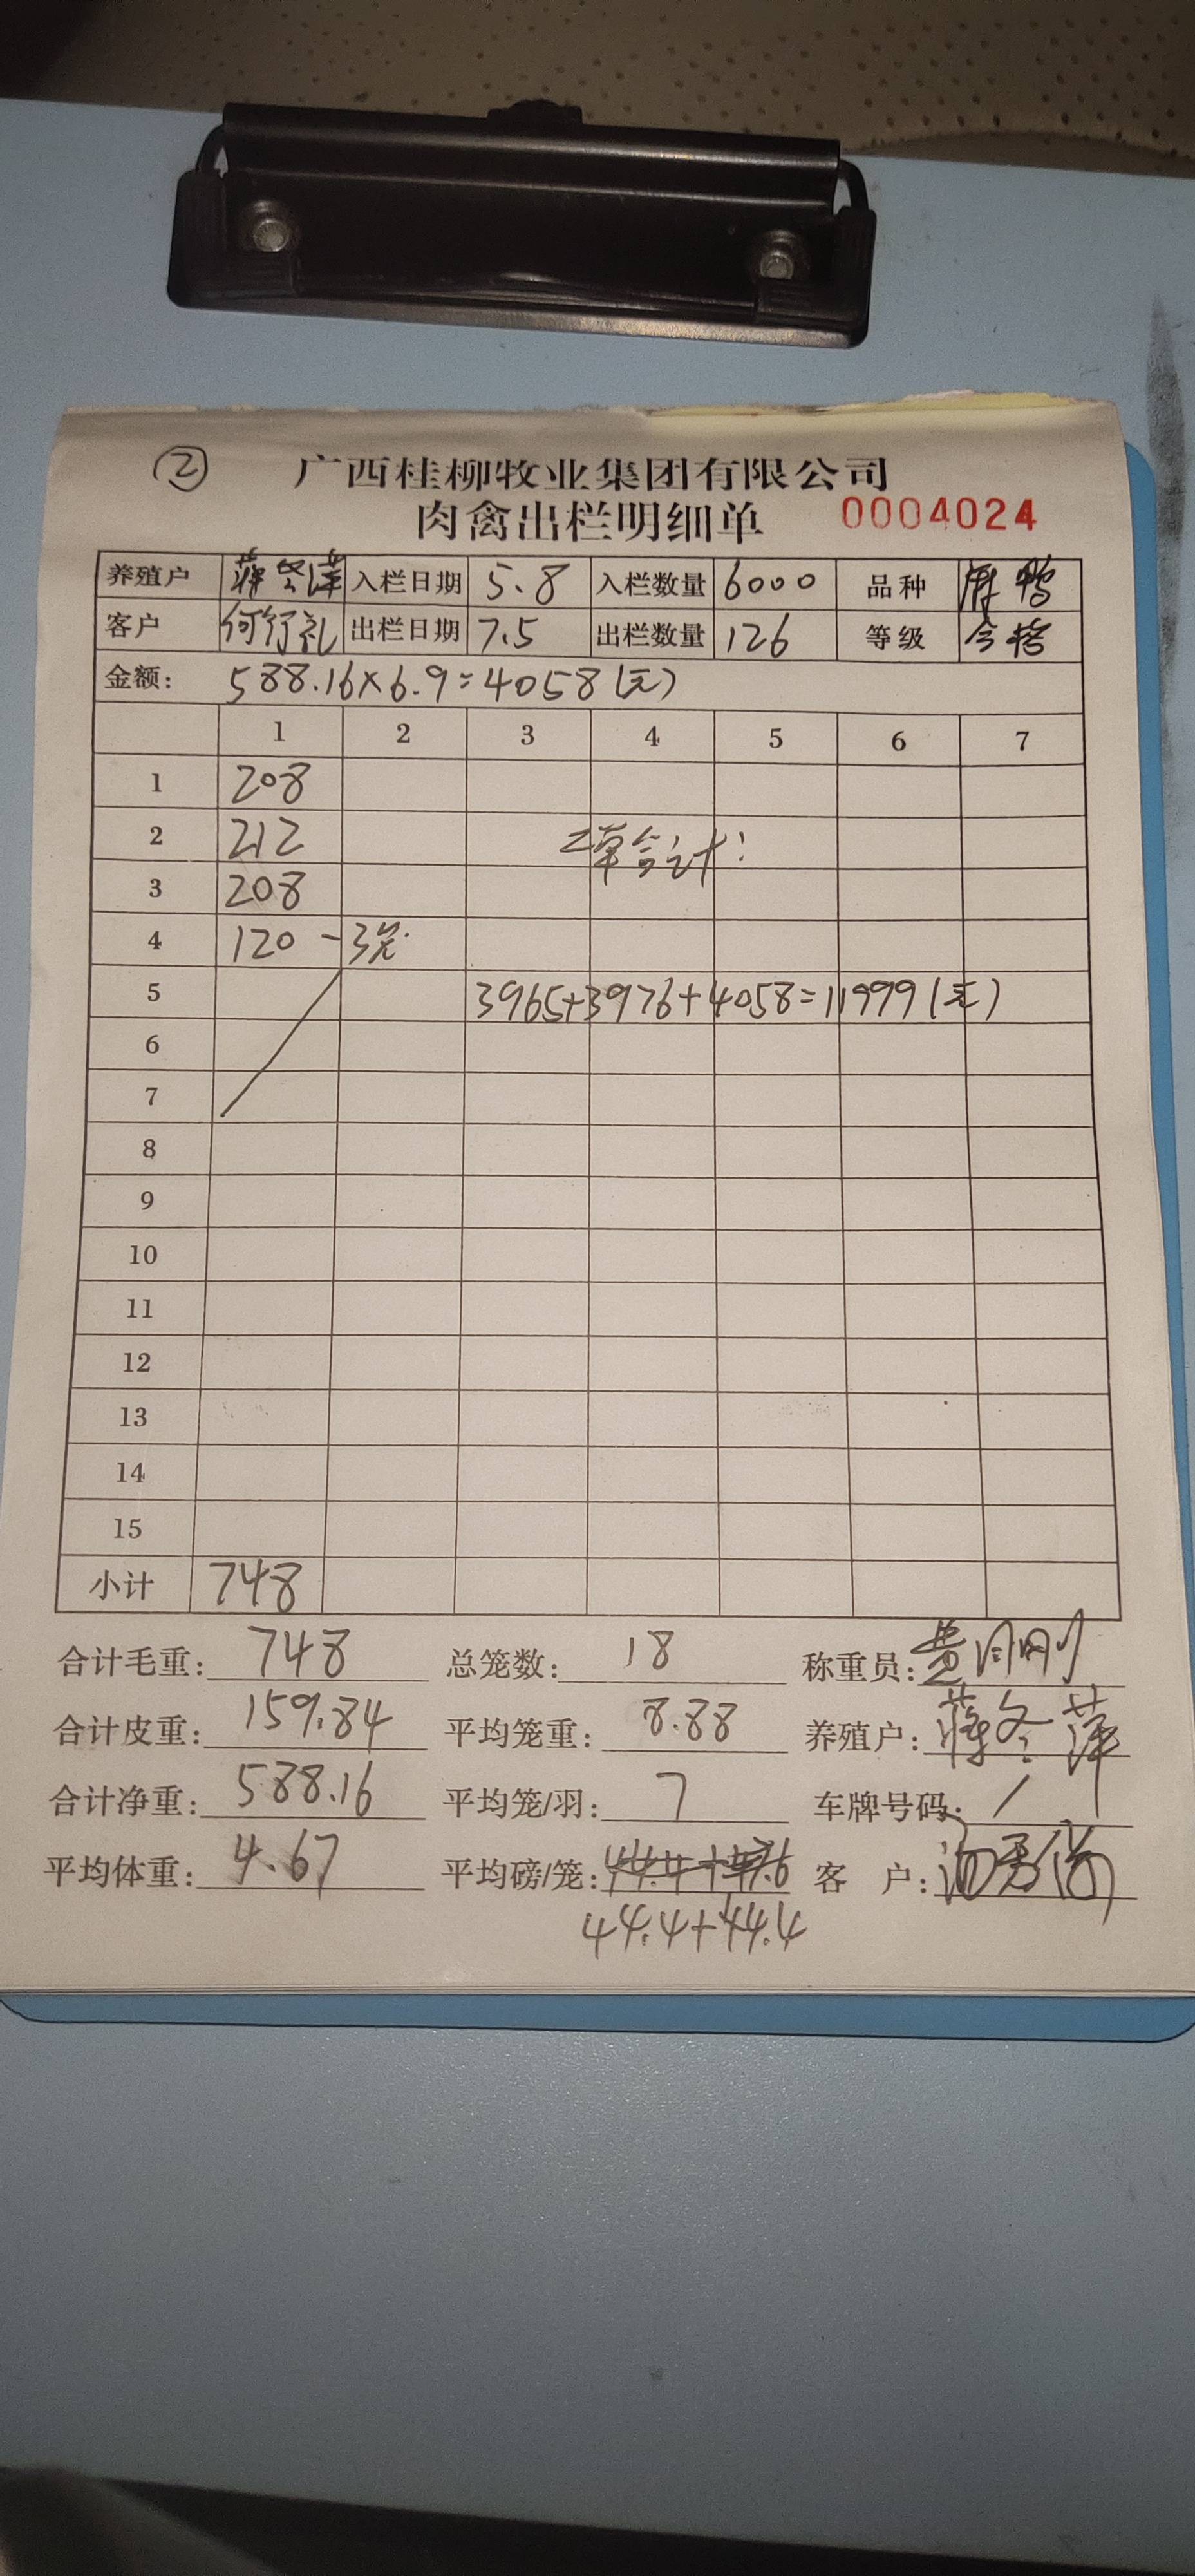 ② 广西桂柳牧业集团有限公司
肉禽出栏明细单 0004024
养殖户 蒋冬萍 入栏日期 5.8 入栏数量 6000 品种 麻鸭
客户 何行礼 出栏日期 7.5 出栏数量 126 等级 合格
金额: 588.16×6.9=4058(元)
1 2 3 4 5 6 7
1 208
2 212 单合计:
3 208
4 120 -3笼
5 3965+3976+4058=11999(元)
6
7
8
9
10
11
12
13
14
15
小计 748
合计毛重: 748 总笼数: 18 称重员:
合计皮重: 159.84 平均笼重: 8.88 养殖户: 蒋冬萍
合计净重: 588.16 平均笼/羽: 7 车牌号码: /
平均体重: 4.67 平均磅/笼: 客 户:
44.4+44.4